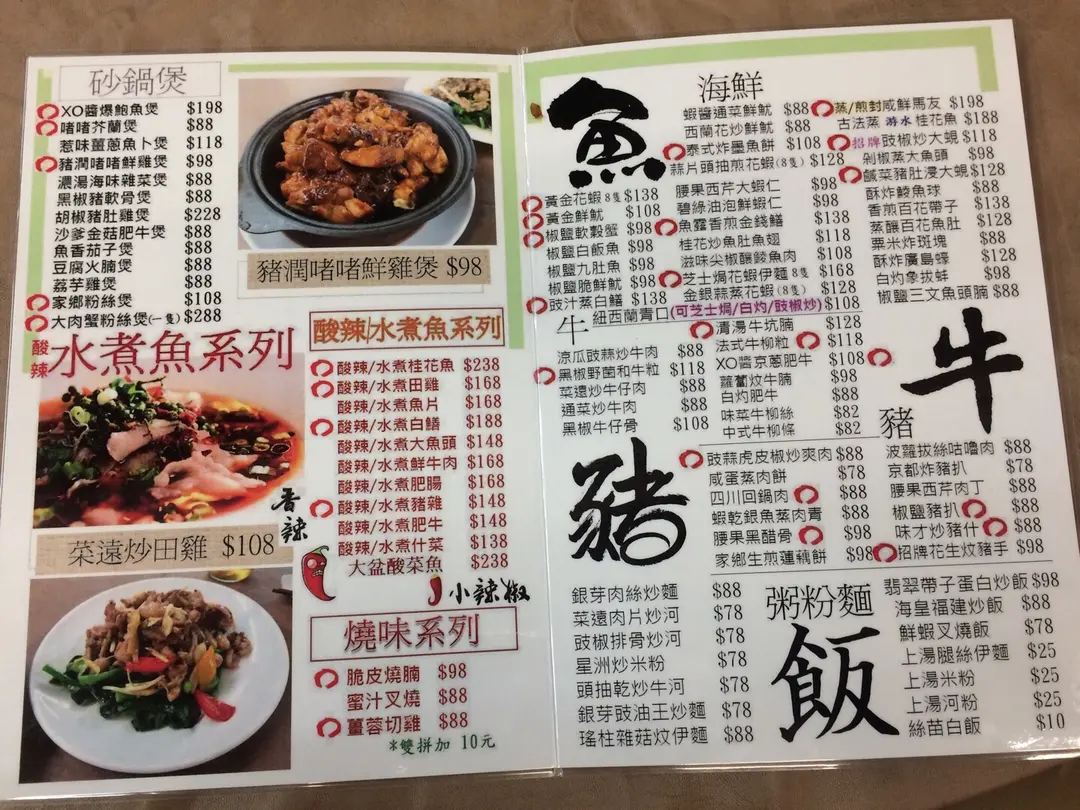 砂鍋煲
XO醬爆鮑魚煲 $198
啫啫芥蘭煲 $88
惹味薑蔥魚卜煲 $118
豬潤啫啫鮮雞煲 $98
濃湯海味雜菜煲 $88
黑椒豬軟骨煲 $88
胡椒豬肚雞煲 $228
沙爹金菇肥牛煲 $88
魚香茄子煲 $88
豆腐火腩煲 $88
荔芋雞煲 $88
家鄉粉絲煲 $108
大肉蟹粉絲煲(一隻) $288
豬潤啫啫鮮雞煲 $98
酸辣
水煮魚系列
香辣
菜遠炒田雞 $108
酸辣/水煮魚系列
酸辣/水煮桂花魚 $238
酸辣/水煮田雞 $168
酸辣/水煮魚片 $168
酸辣/水煮白鱔 $188
酸辣/水煮大魚頭 $148
酸辣/水煮鮮牛肉 $168
酸辣/水煮肥腸 $168
酸辣/水煮豬雜 $148
酸辣/水煮肥牛 $148
酸辣/水煮什菜 $138
大盆酸菜魚 $238
小辣椒
燒味系列
脆皮燒腩 $98
蜜汁叉燒 $88
薑蓉切雞 $88
*雙拼加 10元
魚
海鮮
蝦醬通菜鮮魷 $88
西蘭花炒鮮魷 $88
泰式炸墨魚餅 $108
蒜片頭抽煎花蝦(8隻) $128
黃金花蝦8隻 $138
黃金鮮魷 $108
椒鹽軟殼蟹 $98
椒鹽白飯魚 $98
椒鹽九肚魚 $98
椒鹽脆鮮魷 $98
豉汁蒸白鱔 $138
腰果西芹大蝦仁 $98
碧綠油泡鮮蝦仁 $98
魚露香煎金錢鱔 $138
桂花炒魚肚魚翅 $118
滋味尖椒釀鯪魚肉 $108
芝士焗花蝦伊麵8隻 $168
金銀蒜蒸花蝦(8隻) $128
紐西蘭青口(可芝士焗/白灼/豉椒炒) $108
蒸/煎封咸鮮馬友 $198
古法蒸 游水 桂花魚 $188
招牌豉椒炒大蜆 $118
剁椒蒸大魚頭 $98
鹹菜豬肚浸大蜆 $128
酥炸鯪魚球 $88
香煎百花帶子 $138
蒸釀百花魚肚 $128
粟米炸斑塊 $88
酥炸廣島蠔 $128
白灼象拔蚌 $98
椒鹽三文魚頭腩 $88
牛
涼瓜豉蒜炒牛肉 $88
黑椒野菌和牛粒 $118
菜遠炒牛仔肉 $88
通菜炒牛肉 $88
黑椒牛仔骨 $108
清湯牛坑腩 $128
法式牛柳粒 $118
XO醬京蔥肥牛 $108
蘿蔔炆牛腩 $98
白灼肥牛 $88
味菜牛柳絲 $82
中式牛柳條 $82
牛
豬
豬
豉蒜虎皮椒炒爽肉 $88
咸蛋蒸肉餅 $78
四川回鍋肉 $88
蝦乾銀魚蒸肉青 $88
腰果黑醋骨 $98
家鄉生煎蓮藕餅 $98
波蘿拔絲咕嚕肉 $88
京都炸豬扒 $78
腰果西芹肉丁 $88
椒鹽豬扒 $88
味才炒豬什 $88
招牌花生炆豬手 $98
銀芽肉絲炒麵 $88
菜遠肉片炒河 $78
豉椒排骨炒河 $78
星洲炒米粉 $78
頭抽乾炒牛河 $78
銀芽豉油王炒麵 $78
瑤柱雜菇炆伊麵 $88
粥粉麵
飯
翡翠帶子蛋白炒飯 $98
海皇福建炒飯 $88
鮮蝦叉燒飯 $78
上湯腿絲伊麵 $25
上湯米粉 $25
上湯河粉 $25
絲苗白飯 $10